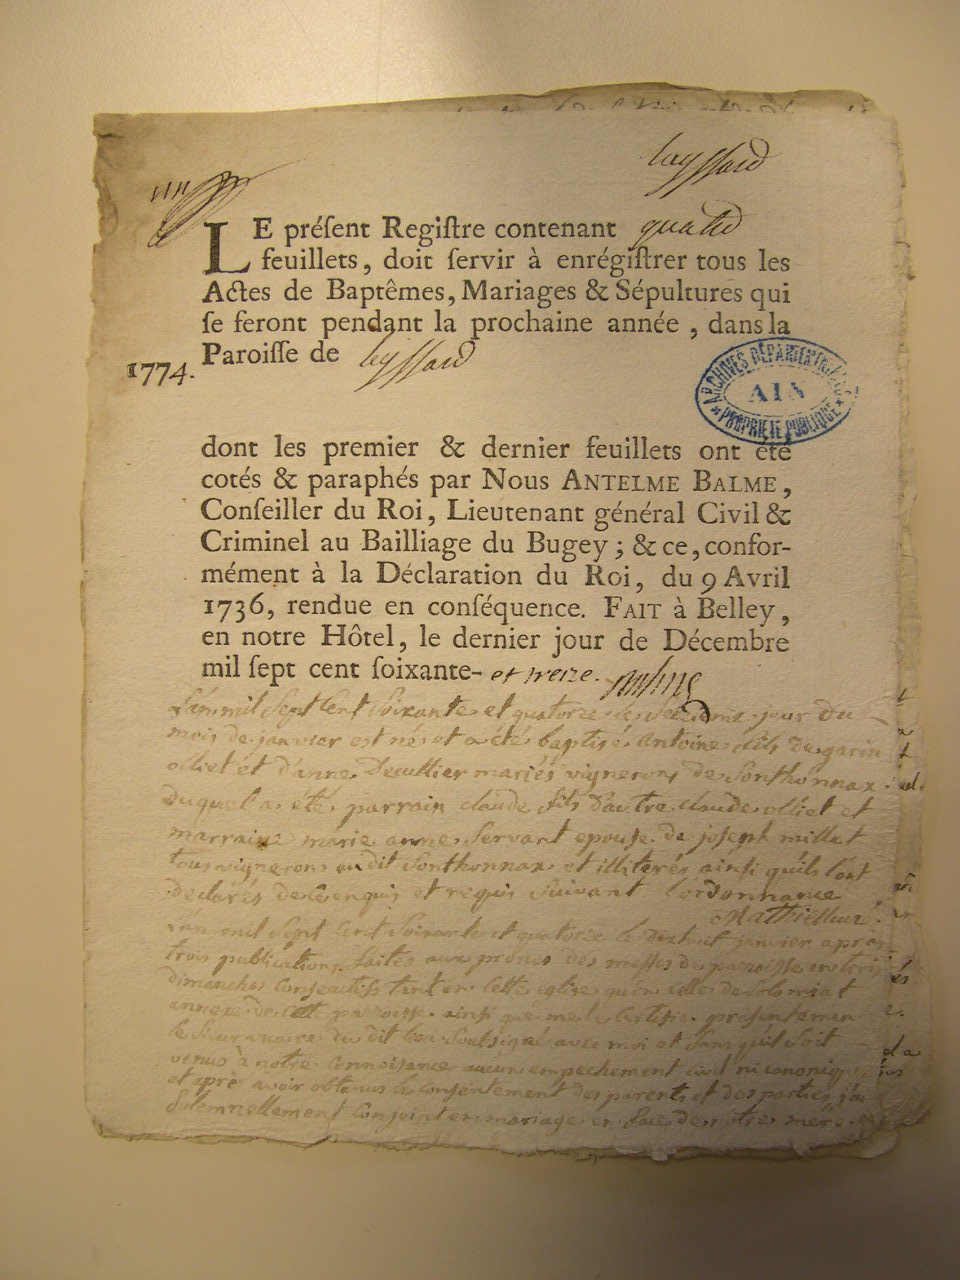 Leyssard
LE préſent Regiſtre contenant quatre
feuillets, doit ſervir à enrégiſtrer tous les
Actes de Baptêmes, Mariages & Sépultures qui
ſe feront pendant la prochaine année, dans la
Paroiſſe de Leyssard
1774.
ARCHIVES DÉPARTEMENTALES
AIN
* PROPRIÉTÉ PUBLIQUE *
dont les premier & dernier feuillets ont été
cotés & paraphés par Nous ANTELME BALME,
Conſeiller du Roi, Lieutenant général Civil &
Criminel au Bailliage du Bugey; & ce, confor-
mément à la Déclaration du Roi, du 9 Avril
1736, rendue en conſéquence. FAIT à Belley,
en notre Hôtel, le dernier jour de Décembre
mil ſept cent ſoixante- et treize.
L'an mil Sept Cent Soixante et quatorze le Seizieme jour Du
mois de janvier est né et a été baptisé Antoine fils de
olliet et d'anne Decullier mariés vignerons de Sonthonnax
Duquel a été parrain claude fils d'autre claude olliet et
marraine marie anne Servant epouse de joseph millet
tous vignerons audit Sonthonnax et illiterés ainsi qu'ils l'ont
declarés de Ce enquis et requis Suivant l'ordonnance
L'an mil Sept Cent Soixante et quatorze le dixhuit janvier après
trois publications faites aux prônes des messes de paroisse en trois
dimanches Consecutifs tant en Cette eglise qu'en celle de Solomiat
annexe de Cette paroisse ainsi que me le Certifie presentement
le Sieur vicaire du dit lieu Soussigné avec moi et Sans qu'il Soit
venus à notre Connoisance aucun empechement Civil ni canonique
et après avoir obtenus le Consentement des parents et des parties j'ai
Solemnellement Conjoint en mariage en face de notre mere